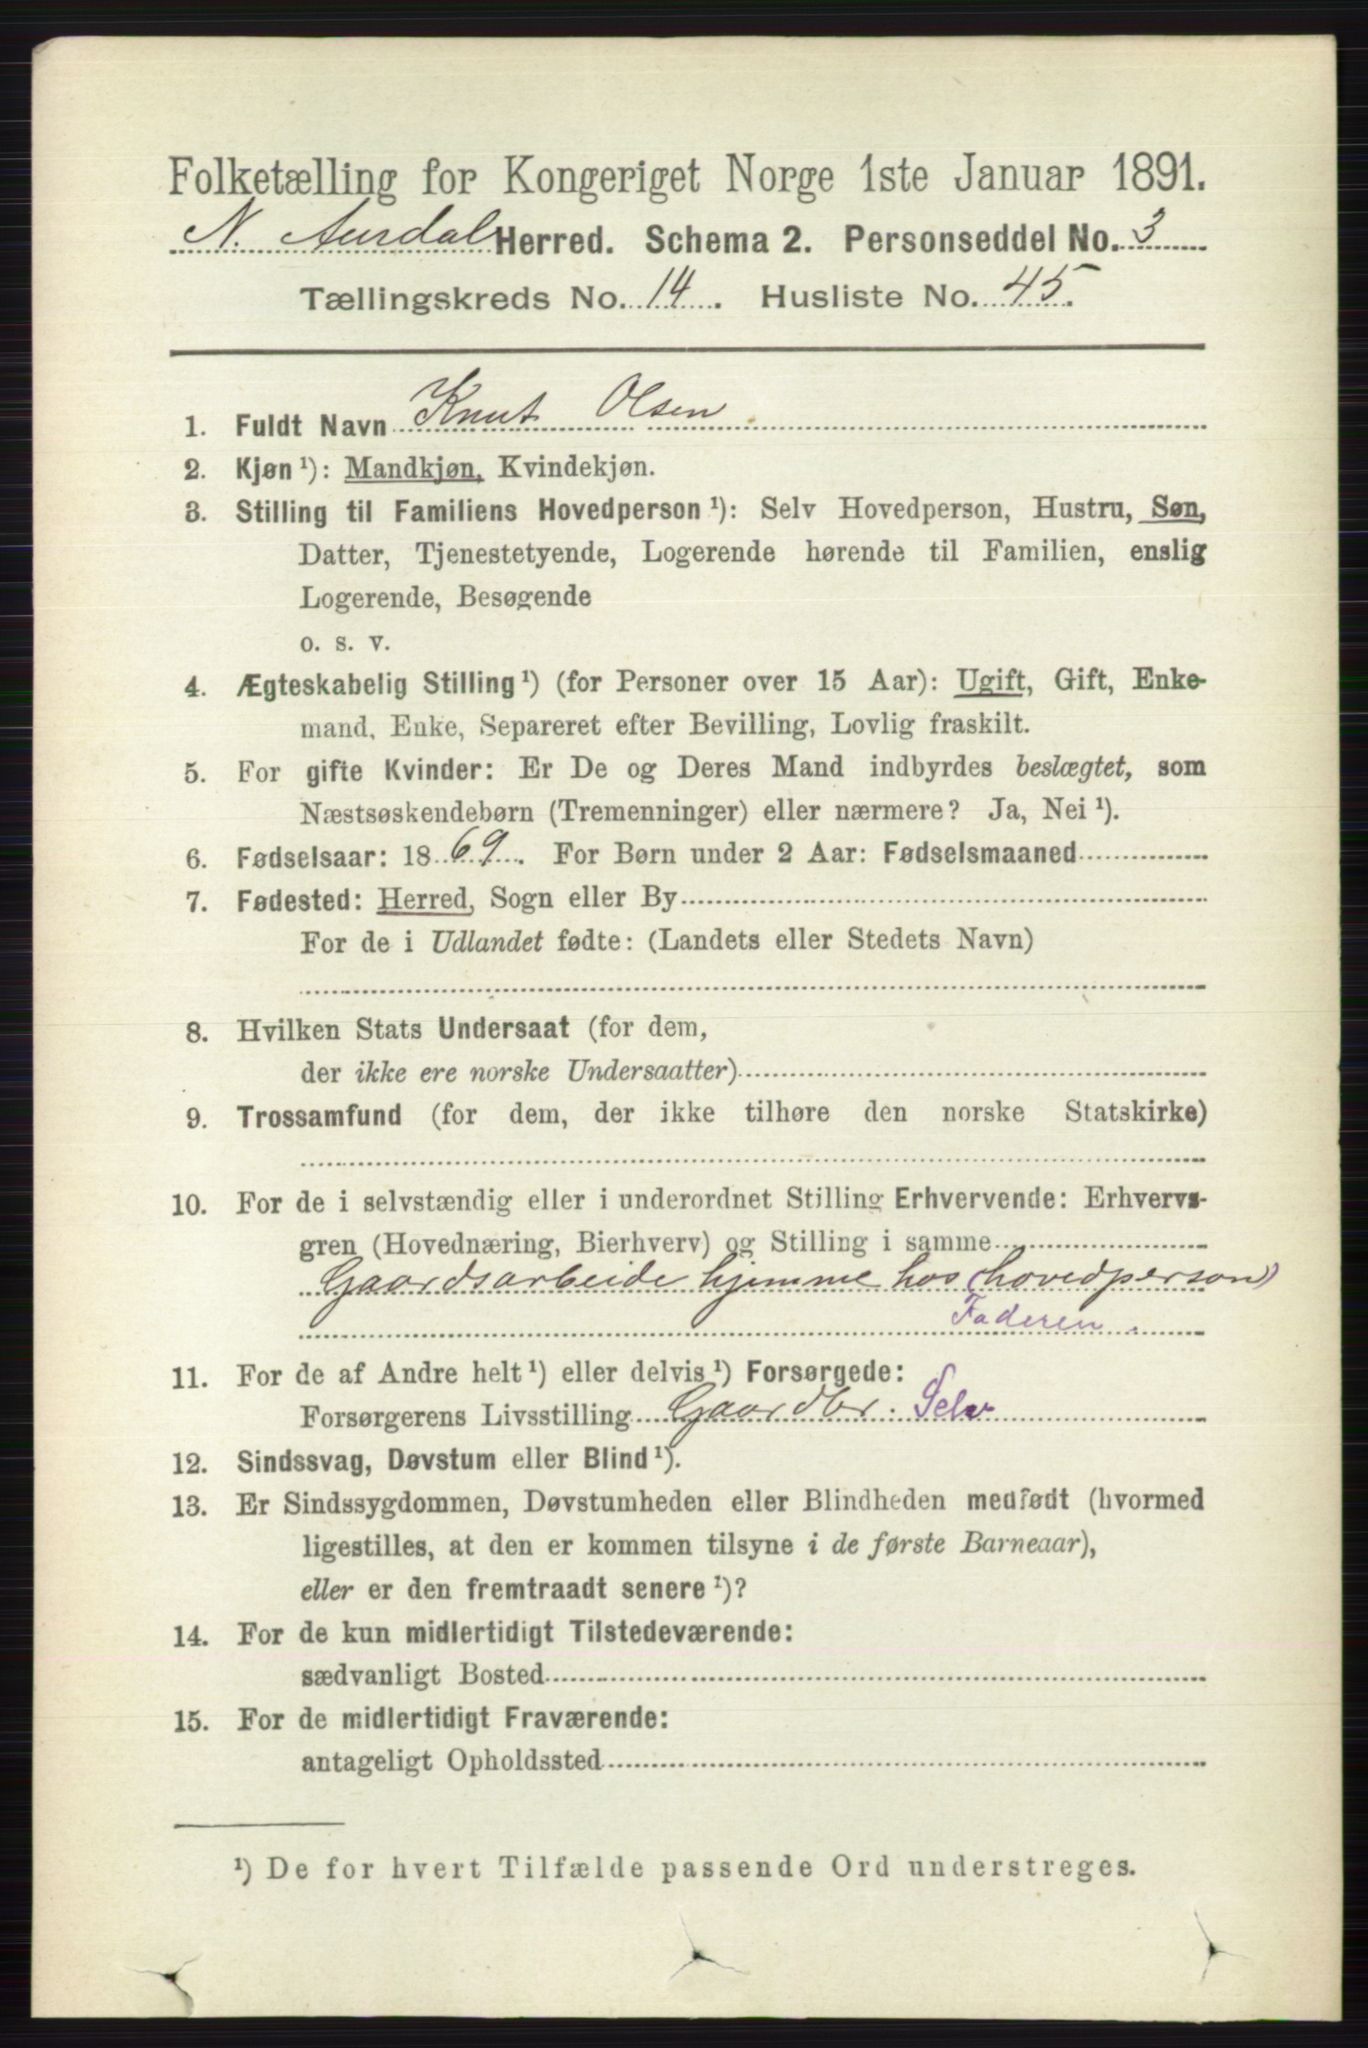 Folketælling for Kongeriget Norge 1ste Januar 1891.
N. Aurdal Herred. Schema 2. Personseddel No. 3
Tællingskreds No. 14. Husliste No. 45.
1. Fuldt Navn Knut Olsen
2. Kjøn ¹): Mandkjøn, Kvindekjøn.
3. Stilling til Familiens Hovedperson ¹): Selv Hovedperson, Hustru, Søn,
Datter, Tjenestetyende, Logerende hørende til Familien, enslig
Logerende, Besøgende
o. s. v.
4. Ægteskabelig Stilling ¹) (for Personer over 15 Aar): Ugift, Gift, Enke-
mand, Enke, Separeret efter Bevilling, Lovlig fraskilt.
5. For gifte Kvinder: Er De og Deres Mand indbyrdes beslægtet, som
Næstsøskendebørn (Tremenninger) eller nærmere? Ja, Nei ¹).
6. Fødselsaar: 1869. For Børn under 2 Aar: Fødselsmaaned
7. Fødested: Herred, Sogn eller By
For de i Udlandet fødte: (Landets eller Stedets Navn)
8. Hvilken Stats Undersaat (for dem,
der ikke ere norske Undersaatter)
9. Trossamfund (for dem, der ikke tilhøre den norske Statskirke)
10. For de i selvstændig eller i underordnet Stilling Erhvervende: Erhvervs-
gren (Hovednæring, Bierhverv) og Stilling i samme
Gaardsarbeide hjemme hos (hovedperson)
Faderen.
11. For de af Andre helt ¹) eller delvis ¹) Forsørgede:
Forsørgerens Livsstilling Gaardbr. Selv
12. Sindssvag, Døvstum eller Blind ¹).
13. Er Sindssygdommen, Døvstumheden eller Blindheden medfødt (hvormed
ligestilles, at den er kommen tilsyne i de første Barneaar),
eller er den fremtraadt senere ¹)?
14. For de kun midlertidigt Tilstedeværende:
sædvanligt Bosted
15. For de midlertidigt Fraværende:
antageligt Opholdssted
¹) De for hvert Tilfælde passende Ord understreges.